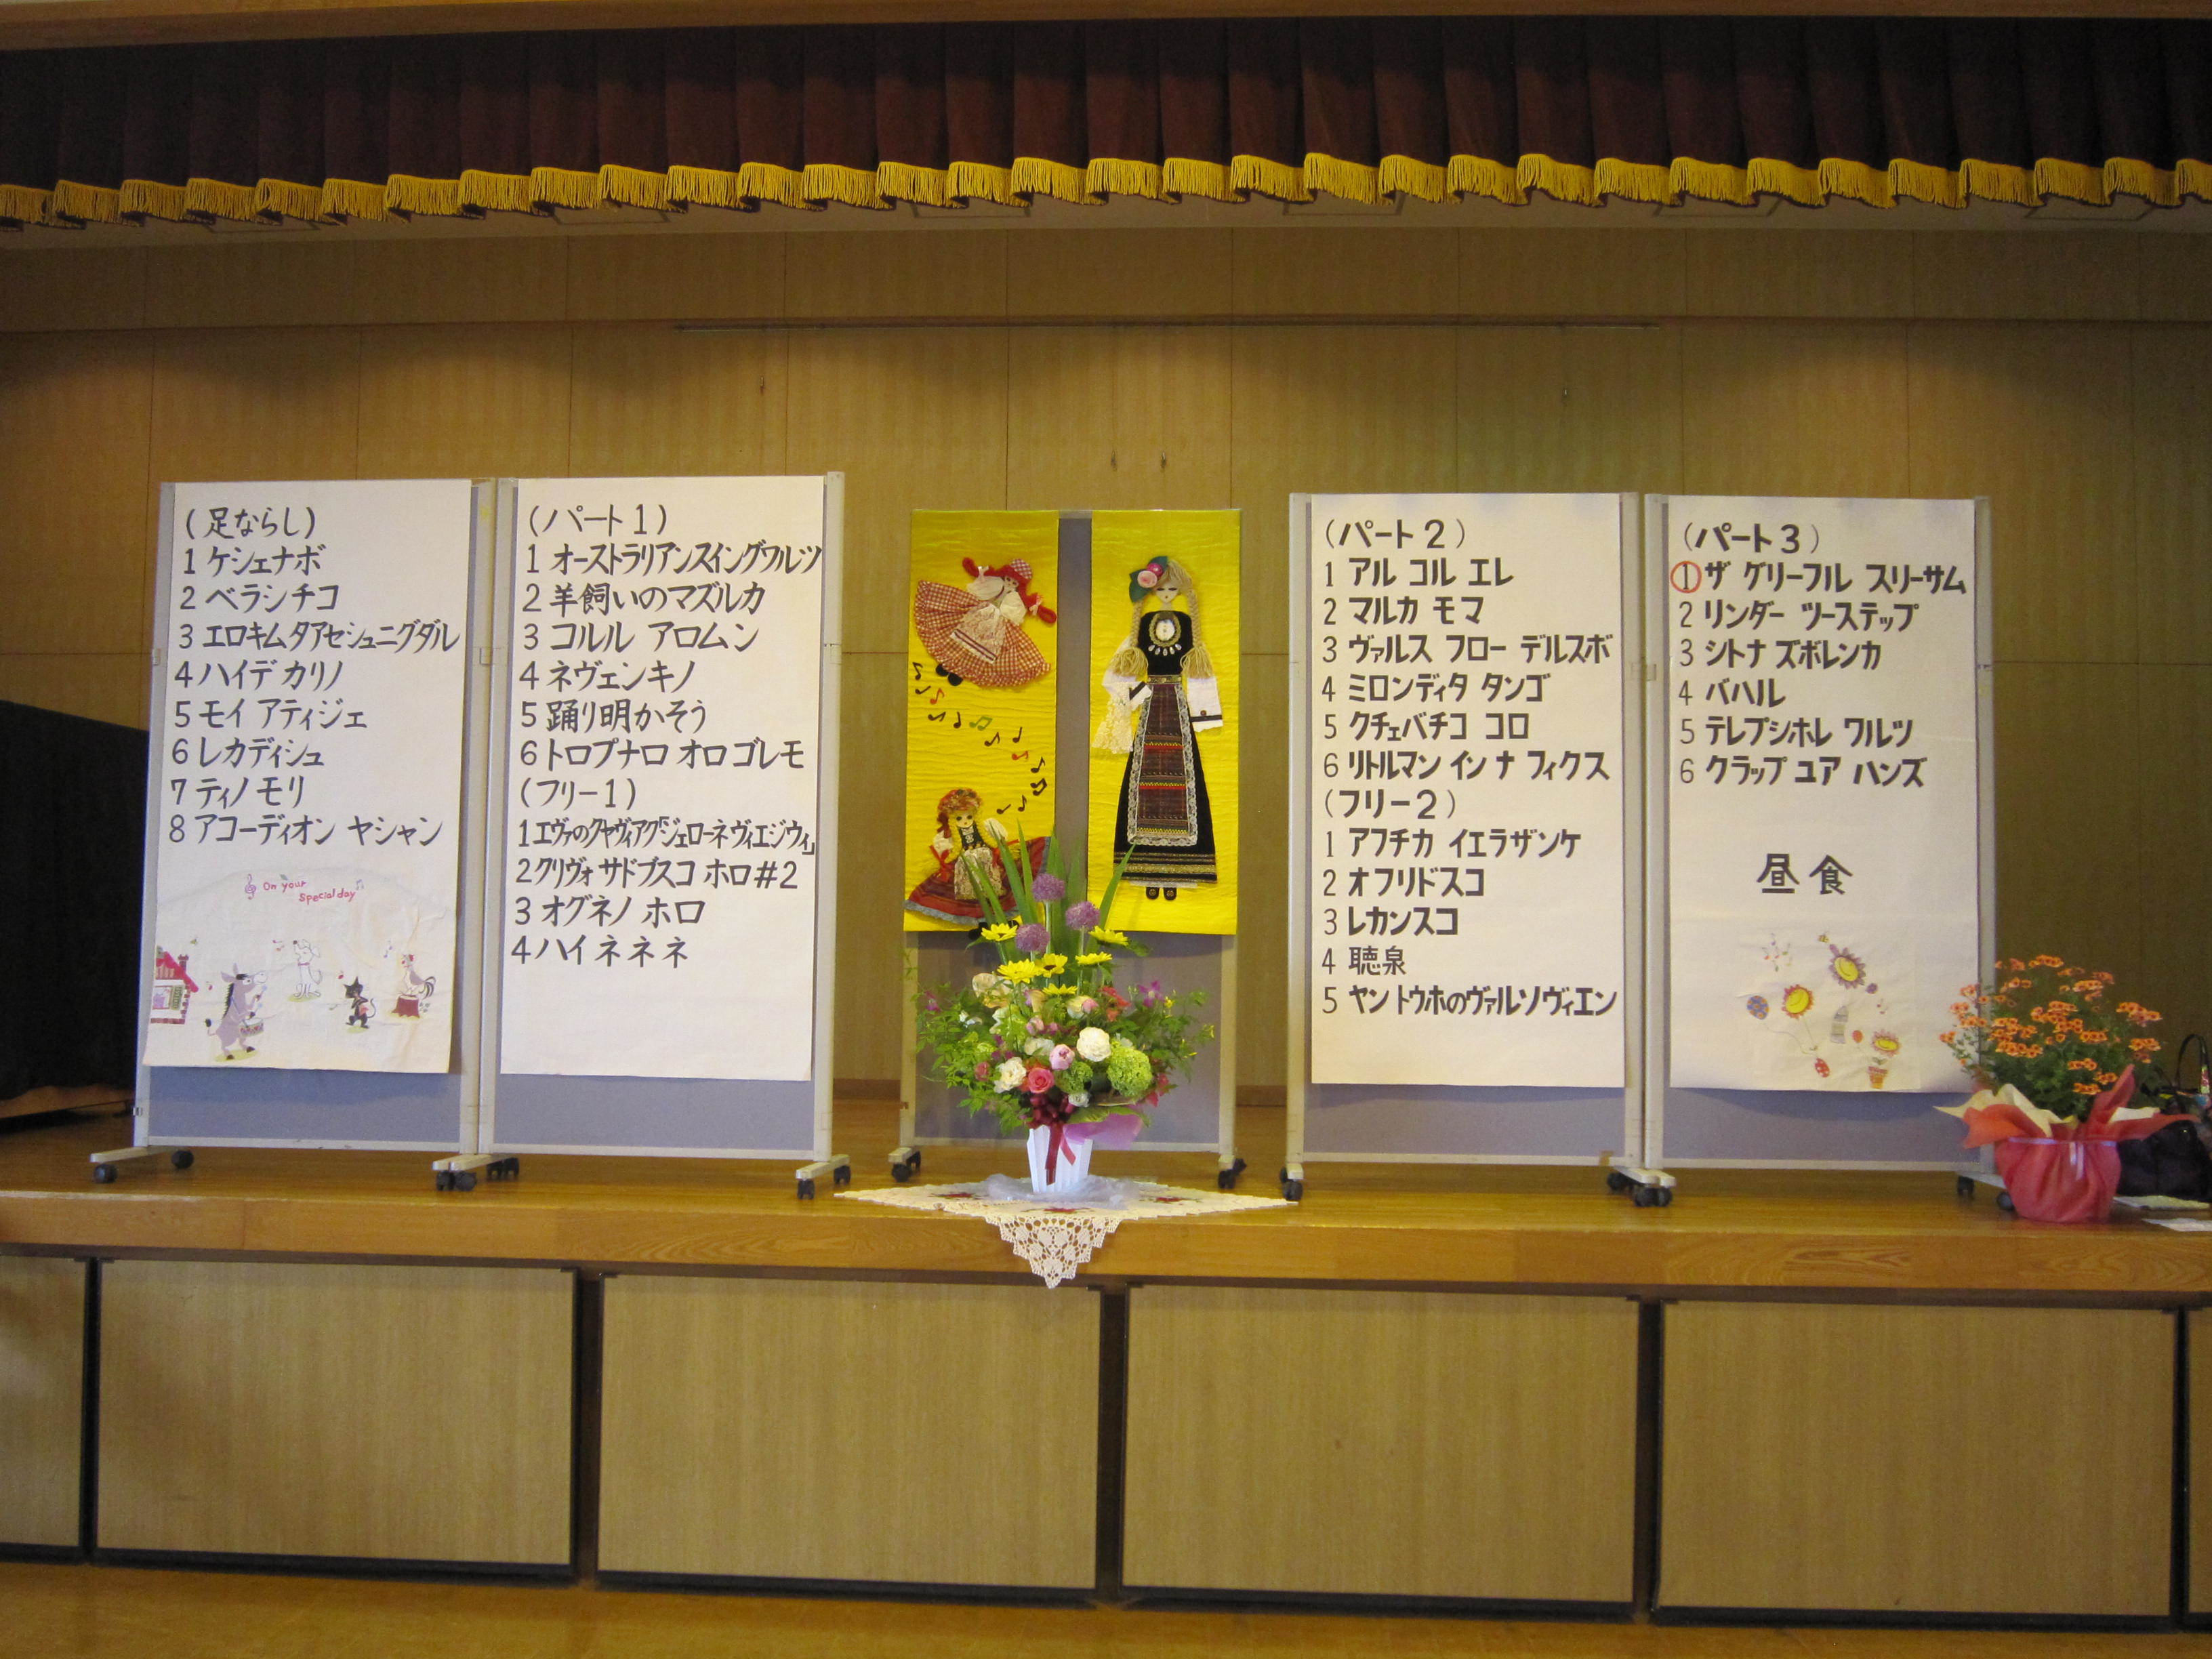 (足ならし)
1 ケシェナボ
2 ベラシチコ
3 エロキムタアセシュニグダル
4 ハイデ カリノ
5 モイ アティジェ
6 レカディシュ
7 ティノ モリ
8 アコーディオン ヤシャン
On your
special day
(パート1)
1 オーストラリアンスイングワルツ
2 羊飼いのマズルカ
3 コルル アロムン
4 ネヴェンキノ
5 踊り明かそう
6 トロプナロ オロ ゴレモ
(フリー1)
1 エヴァのクヤヴィアク「ジェローネ ヴィエジウィ」
2 クリヴォ サドフスコ ホロ#2
3 オグネノ ホロ
4 ハイ ネ ネ ネ
(パート2)
1 アル コル エレ
2 マルカ モマ
3 ヴァルス フロー デルスボ
4 ミロンディタ タンゴ
5 クチェバチコ コロ
6 リトルマン イン ナ フィクス
(フリー2)
1 アフチカ イエラザンケ
2 オフリドスコ
3 レカンスコ
4 聴泉
5 ヤン トウホのヴァルソヴィエン
(パート3)
① ザ グリーフル スリーサム
2 リンダー ツーステップ
3 シトナ ズボレンカ
4 バハル
5 テレプシホレ ワルツ
6 クラップ ユア ハンズ
昼食